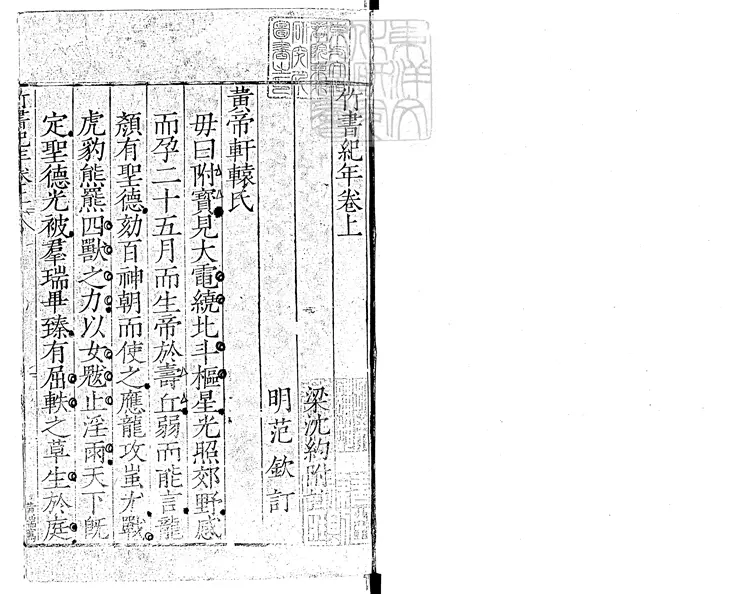 竹書紀年卷上
梁沈約附註
明范欽訂
黃帝軒轅氏
母曰附寶見大電繞北斗樞星光照郊野感
而孕二十五月而生帝於壽丘弱而能言龍
顏有聖德劾百神朝而使之應龍攻蚩尤戰
虎豹熊羆四獸之力以女魃止淫雨天下旣
定聖德光被羣瑞畢臻有屈軼之草生於庭
竹書紀年卷上